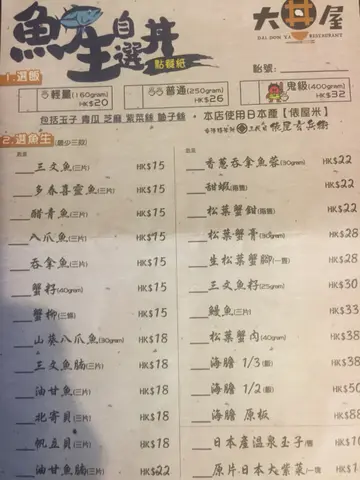 魚生自選丼
點餐紙
大丼屋
DAI DON YA RESTAURANT
1.選飯
枱號:
輕量(160gram) HK$20
普通(250gram) HK$26
鬼級(400gram) HK$32
包括玉子 青瓜 芝麻 紫菜絲 柚子絲 • 本店使用日本產【俵屋米】
2.選魚生(最少三款)
三文魚(三片) HK$15
多春喜靈魚(三片) HK$15
醋青魚(三片) HK$15
八爪魚(三片) HK$15
吞拿魚(三片) HK$15
蟹籽(40gram) HK$15
蟹柳(三條) HK$15
山葵八爪魚(30gram) HK$18
三文魚腩(三片) HK$18
油甘魚(三片) HK$18
北寄貝(三片) HK$18
帆立貝(三片) HK$18
油甘魚腩(三片) HK$22
香蔥吞拿魚蓉(30gram) HK$22
甜蝦(兩隻) HK$22
松葉蟹鉗(兩隻) HK$22
松葉蟹膏(30gram) HK$28
生松葉蟹腳(一隻) HK$28
三文魚籽(25gram) HK$30
鰻魚(三片) HK$33
松葉蟹肉(40gram) HK$38
海膽 1/3(板) HK$38
海膽 1/2(板) HK$50
海膽 原板 HK$88
日本產溫泉玉子/隻
原片日本大紫菜/一塊